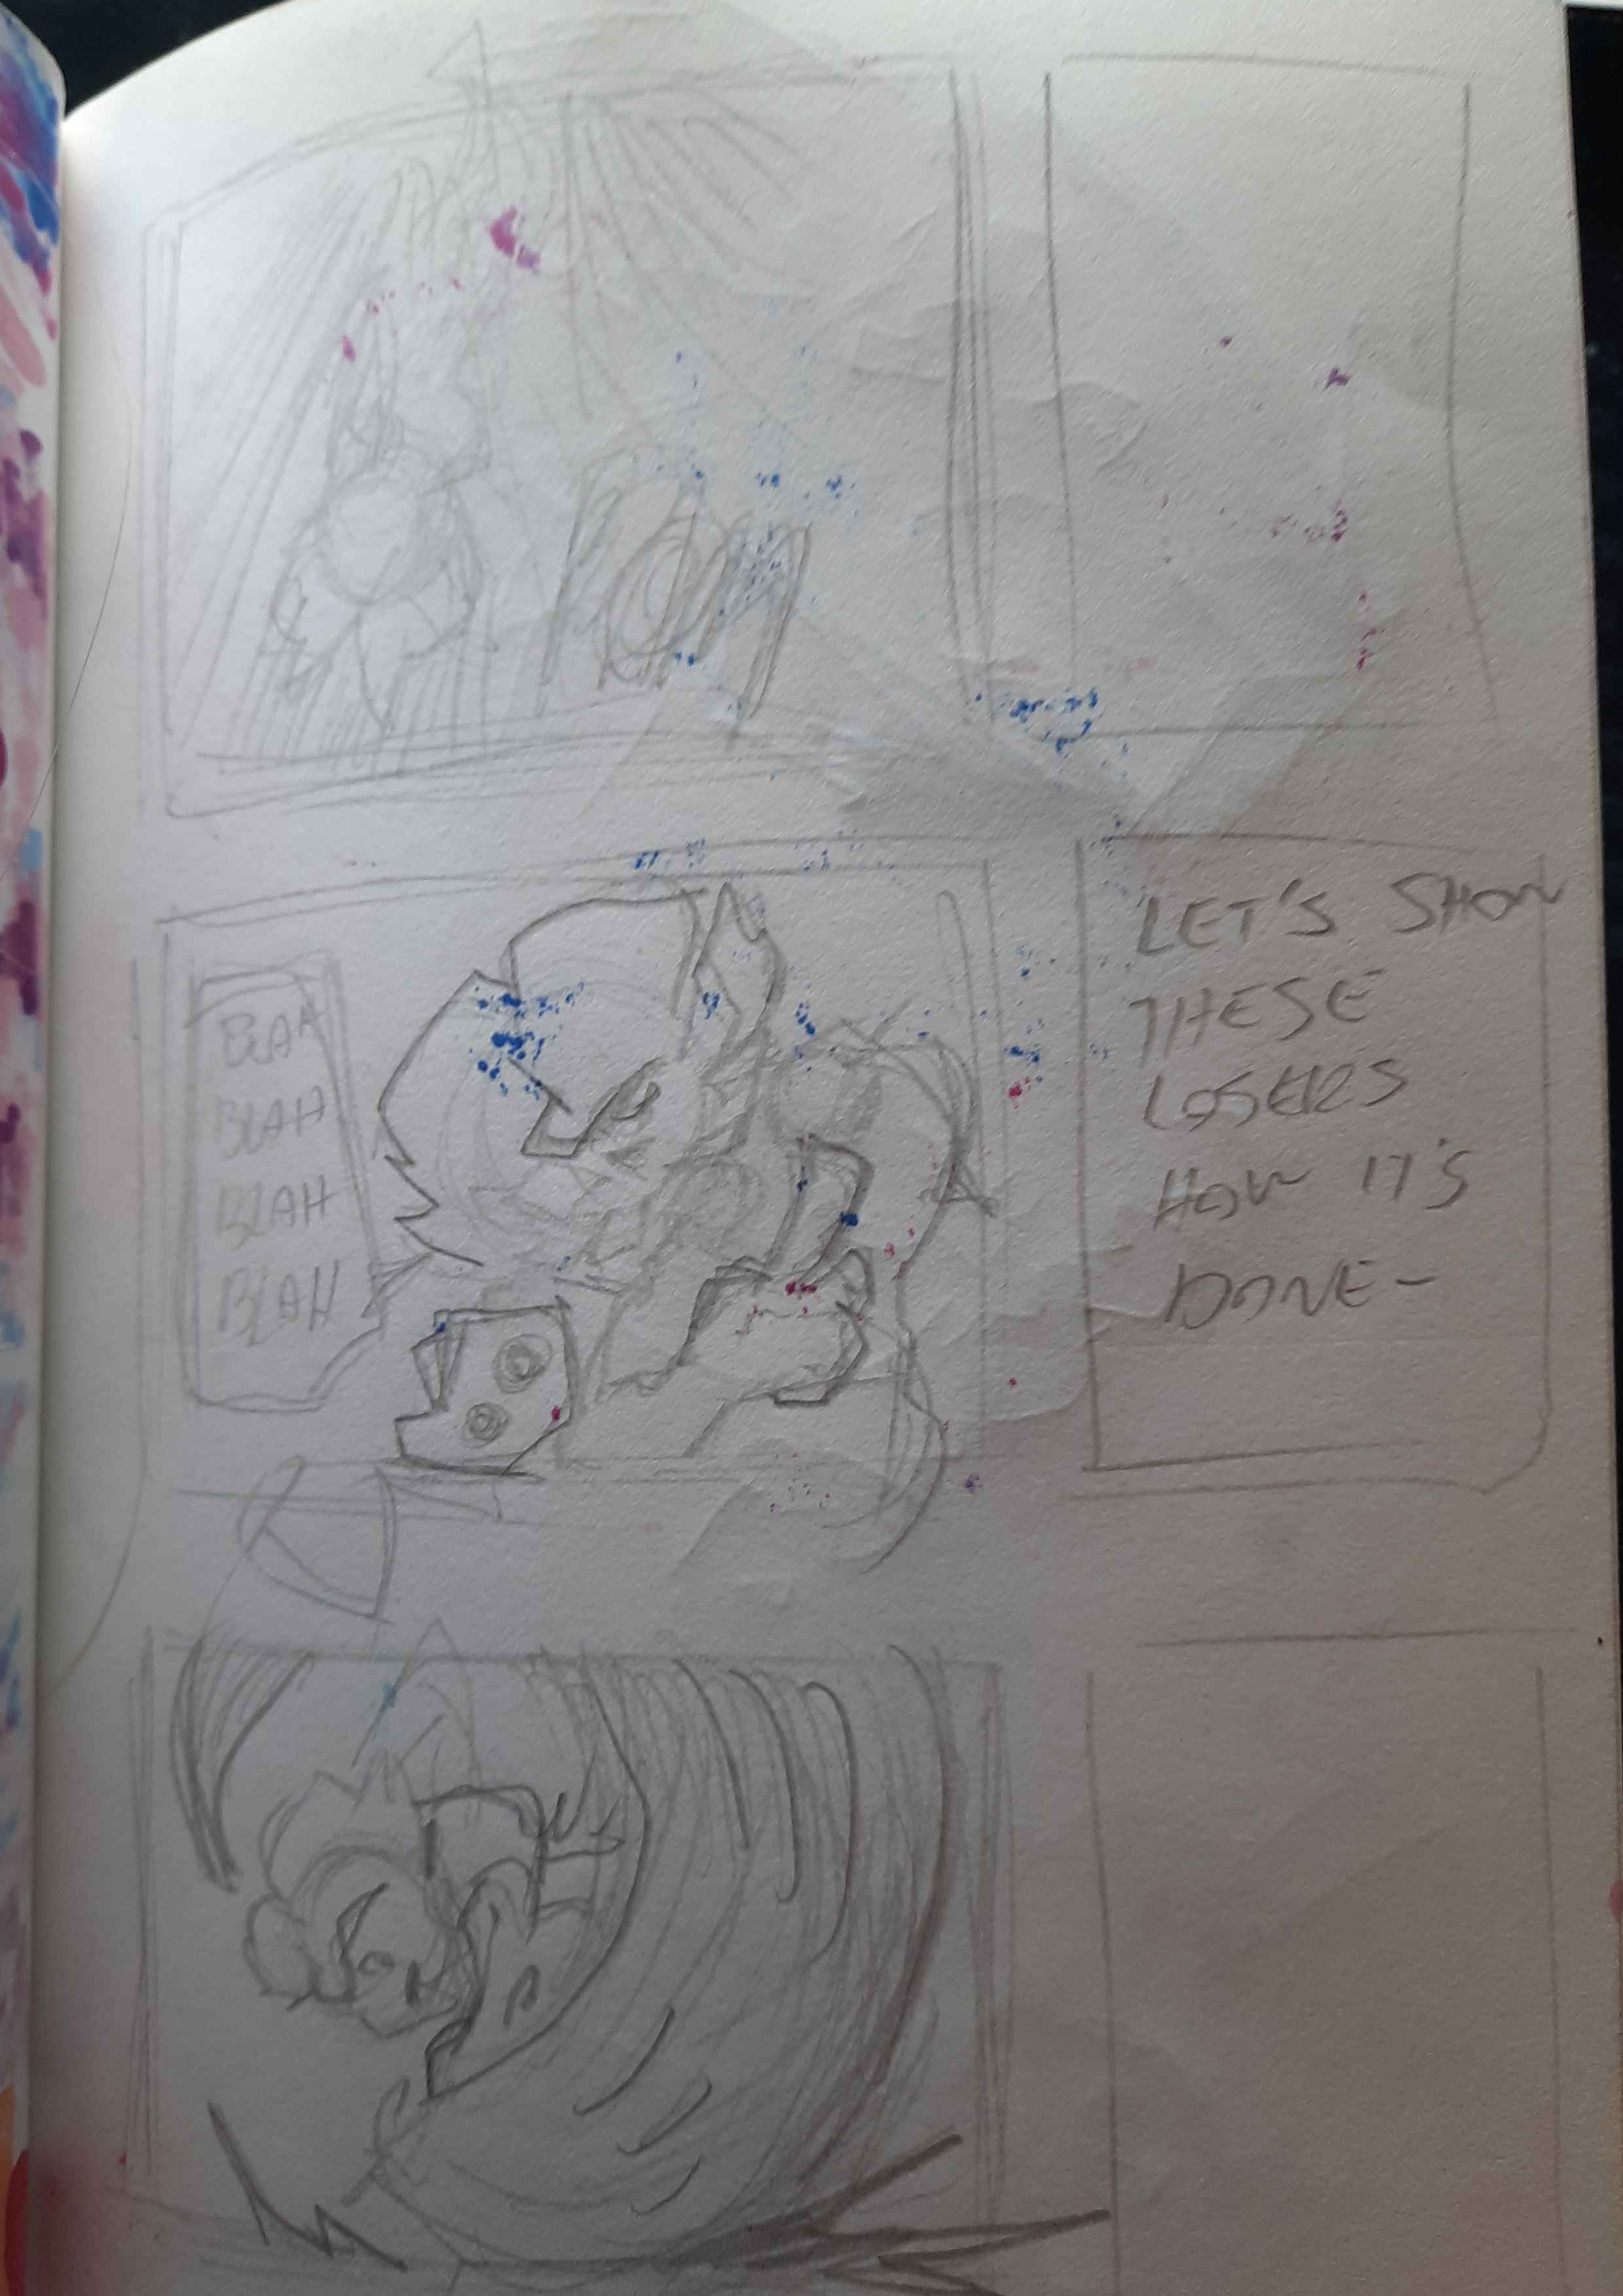 BLAH
BLAH
BLAH
BLAH
LET'S SHOW
THESE
LOSERS
HOW IT'S
DONE-